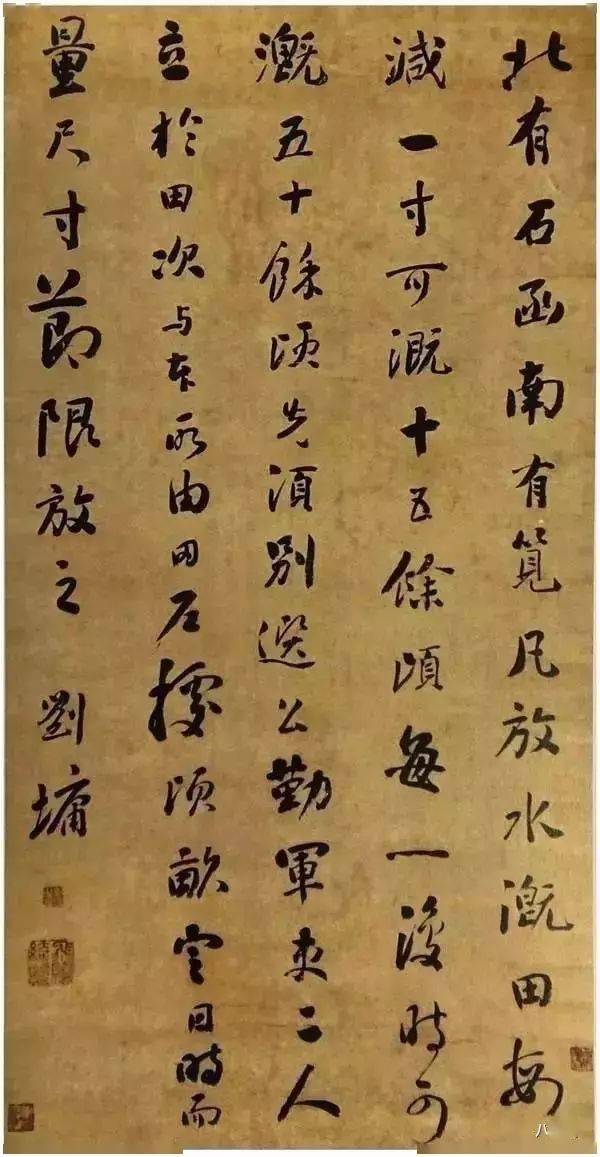 北有石函南有筧凡放水溉田每
減一寸可溉十五餘頃每一復時可
溉五十餘頃先須別選公勤軍吏二人
立於田次与本所由田戶據頃畝定日時而
量尺寸節限放之 劉墉
八